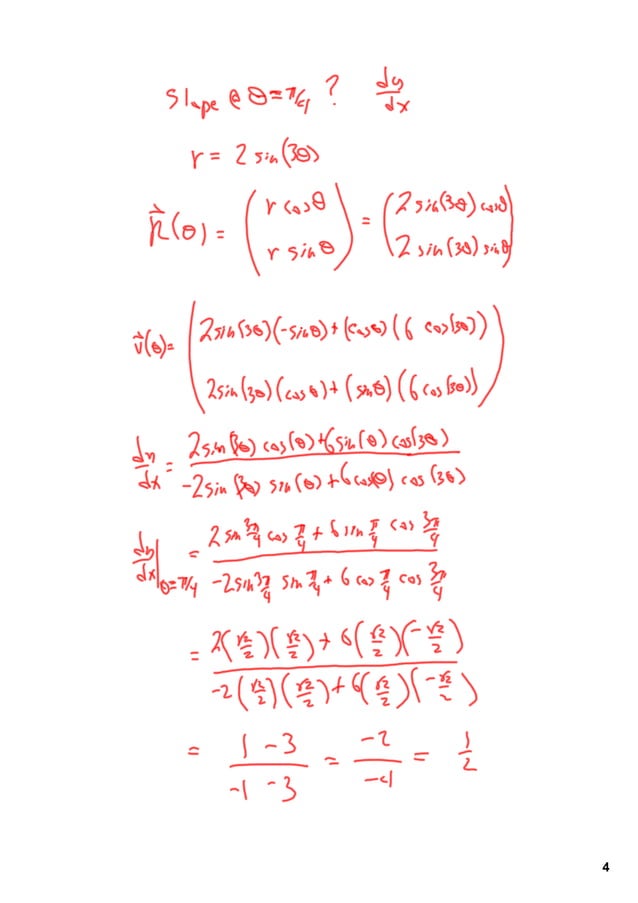 slope @ θ = π/4 ? dy/dx
r = 2 sin(3θ)
R⃗(θ) = (r cosθ, r sinθ) = (2 sin(3θ) cosθ, 2 sin(3θ) sinθ)
v⃗(θ) = (2 sin(3θ)(-sinθ) + (cosθ)(6 cos(3θ)), 2 sin(3θ)(cosθ) + (sinθ)(6 cos(3θ)))
dy/dx = (2 sin(3θ) cos(θ) + 6 sin(θ) cos(3θ)) / (-2 sin(3θ) sin(θ) + 6 cos(θ) cos(3θ))
dy/dx |θ=π/4 = (2 sin 3π/4 cos π/4 + 6 sin π/4 cos 3π/4) / (-2 sin 3π/4 sin π/4 + 6 cos π/4 cos 3π/4)
= (2(√2/2)(√2/2) + 6(√2/2)(-√2/2)) / (-2(√2/2)(√2/2) + 6(√2/2)(-√2/2))
= (1 - 3)/(-1 - 3) = -2/-4 = 1/2
4